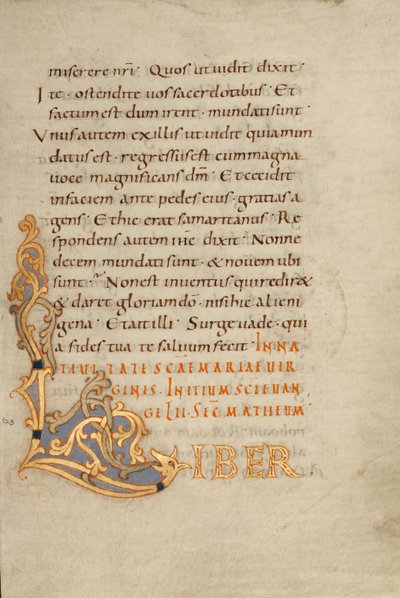 miserere nr̄i · Quos ut vidit dixit ·
Ite · ostendite uos sacerdotibus · Et
factum est dum irent · mundati sunt ·
Vnus autem ex illis ut vidit quia mun
datus est · regressus est cum magna
uoce magnificans dm̄ · Et cecidit
in faciem ante pedes eius · gratias a
gens · Et hic erat samaritanus · Re
spondens autem ihc̄ dixit · Nonne
decem mundati sunt · & nouem ubi
sunt · Non est inventus qui redir&
& dar& gloriam dō · nisi hic alieni
gena · Et ait illi · Surge uade · qui
a fides tua te saluum fecit · IN NA
TIUITATE SC̄AE MARIAE UIR
GINIS · INITIUM SC̄I EUAN
GELII · SEC̄ MATHEUM
LIBER